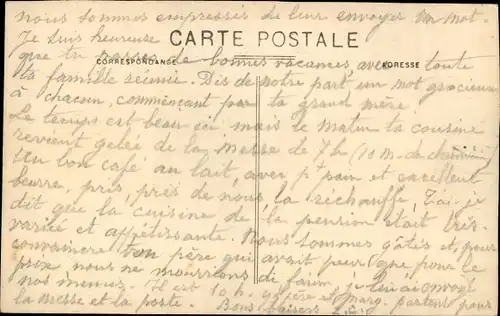 nous sommes empressés de leur envoyer un mot.
Je suis heureuse
CARTE POSTALE
que tu passes de bonnes vacances, avec toute
CORRESPONDANCE
ADRESSE
la famille réunie. Dis de notre part, un mot gracieux
à chacun, commençant par ta grand mère
Le temps est beau ici mais le matin ta cousine
revient gelée de la messe de 7h (10 m. de chemin)
Un bon café au lait, avec pt pain et excellent
beurre, pris, près de nous, la réchauffe, T'ai-je
dit que la cuisine de la pension était très
variée et appétissante. Nous sommes gâtés et, pour
convaincre ton père qui avait peur que pour ce
prix nous ne mourrions de faim, je lui ai envoyé
nos menus. Il est 10 h. père et Marg. partent pour
la messe et la poste. Bons baisers